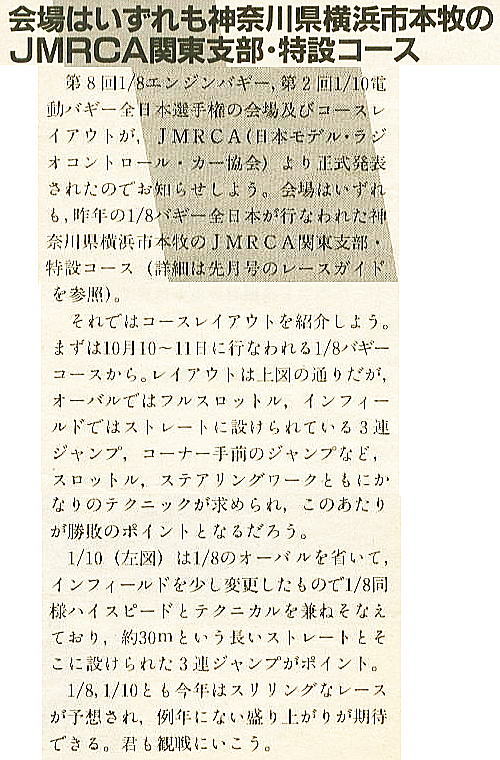 会場はいずれも神奈川県横浜市本牧の
JMRCA関東支部・特設コース
第8回1/8エンジンバギー,第2回1/10電
動バギー全日本選手権の会場及びコースレ
イアウトが, JMRCA(日本モデル・ラジ
オコントロール・カー協会) より正式発表
されたのでお知らせしよう。会場はいずれ
も,昨年の1/8バギー全日本が行なわれた神
奈川県横浜市本牧のJMRCA関東支部・
特設コース (詳細は先月号のレースガイド
を参照)。
それではコースレイアウトを紹介しよう。
まずは10月10〜11日に行なわれる1/8バギー
コースから。レイアウトは上図の通りだが,
オーバルではフルスロットル, インフィー
ルドではストレートに設けられている3連
ジャンプ, コーナー手前のジャンプなど,
スロットル, ステアリングワークともにか
なりのテクニックが求められ, このあたり
が勝敗のポイントとなるだろう。
1/10 (左図) は1/8のオーバルを省いて,
インフィールドを少し変更したもので1/8同
様ハイスピードとテクニカルを兼ねそなえ
ており, 約30mという長いストレートとそ
こに設けられた3連ジャンプがポイント。
1/8,1/10とも今年はスリリングなレース
が予想され, 例年にない盛り上がりが期待
できる。君も観戦にいこう。